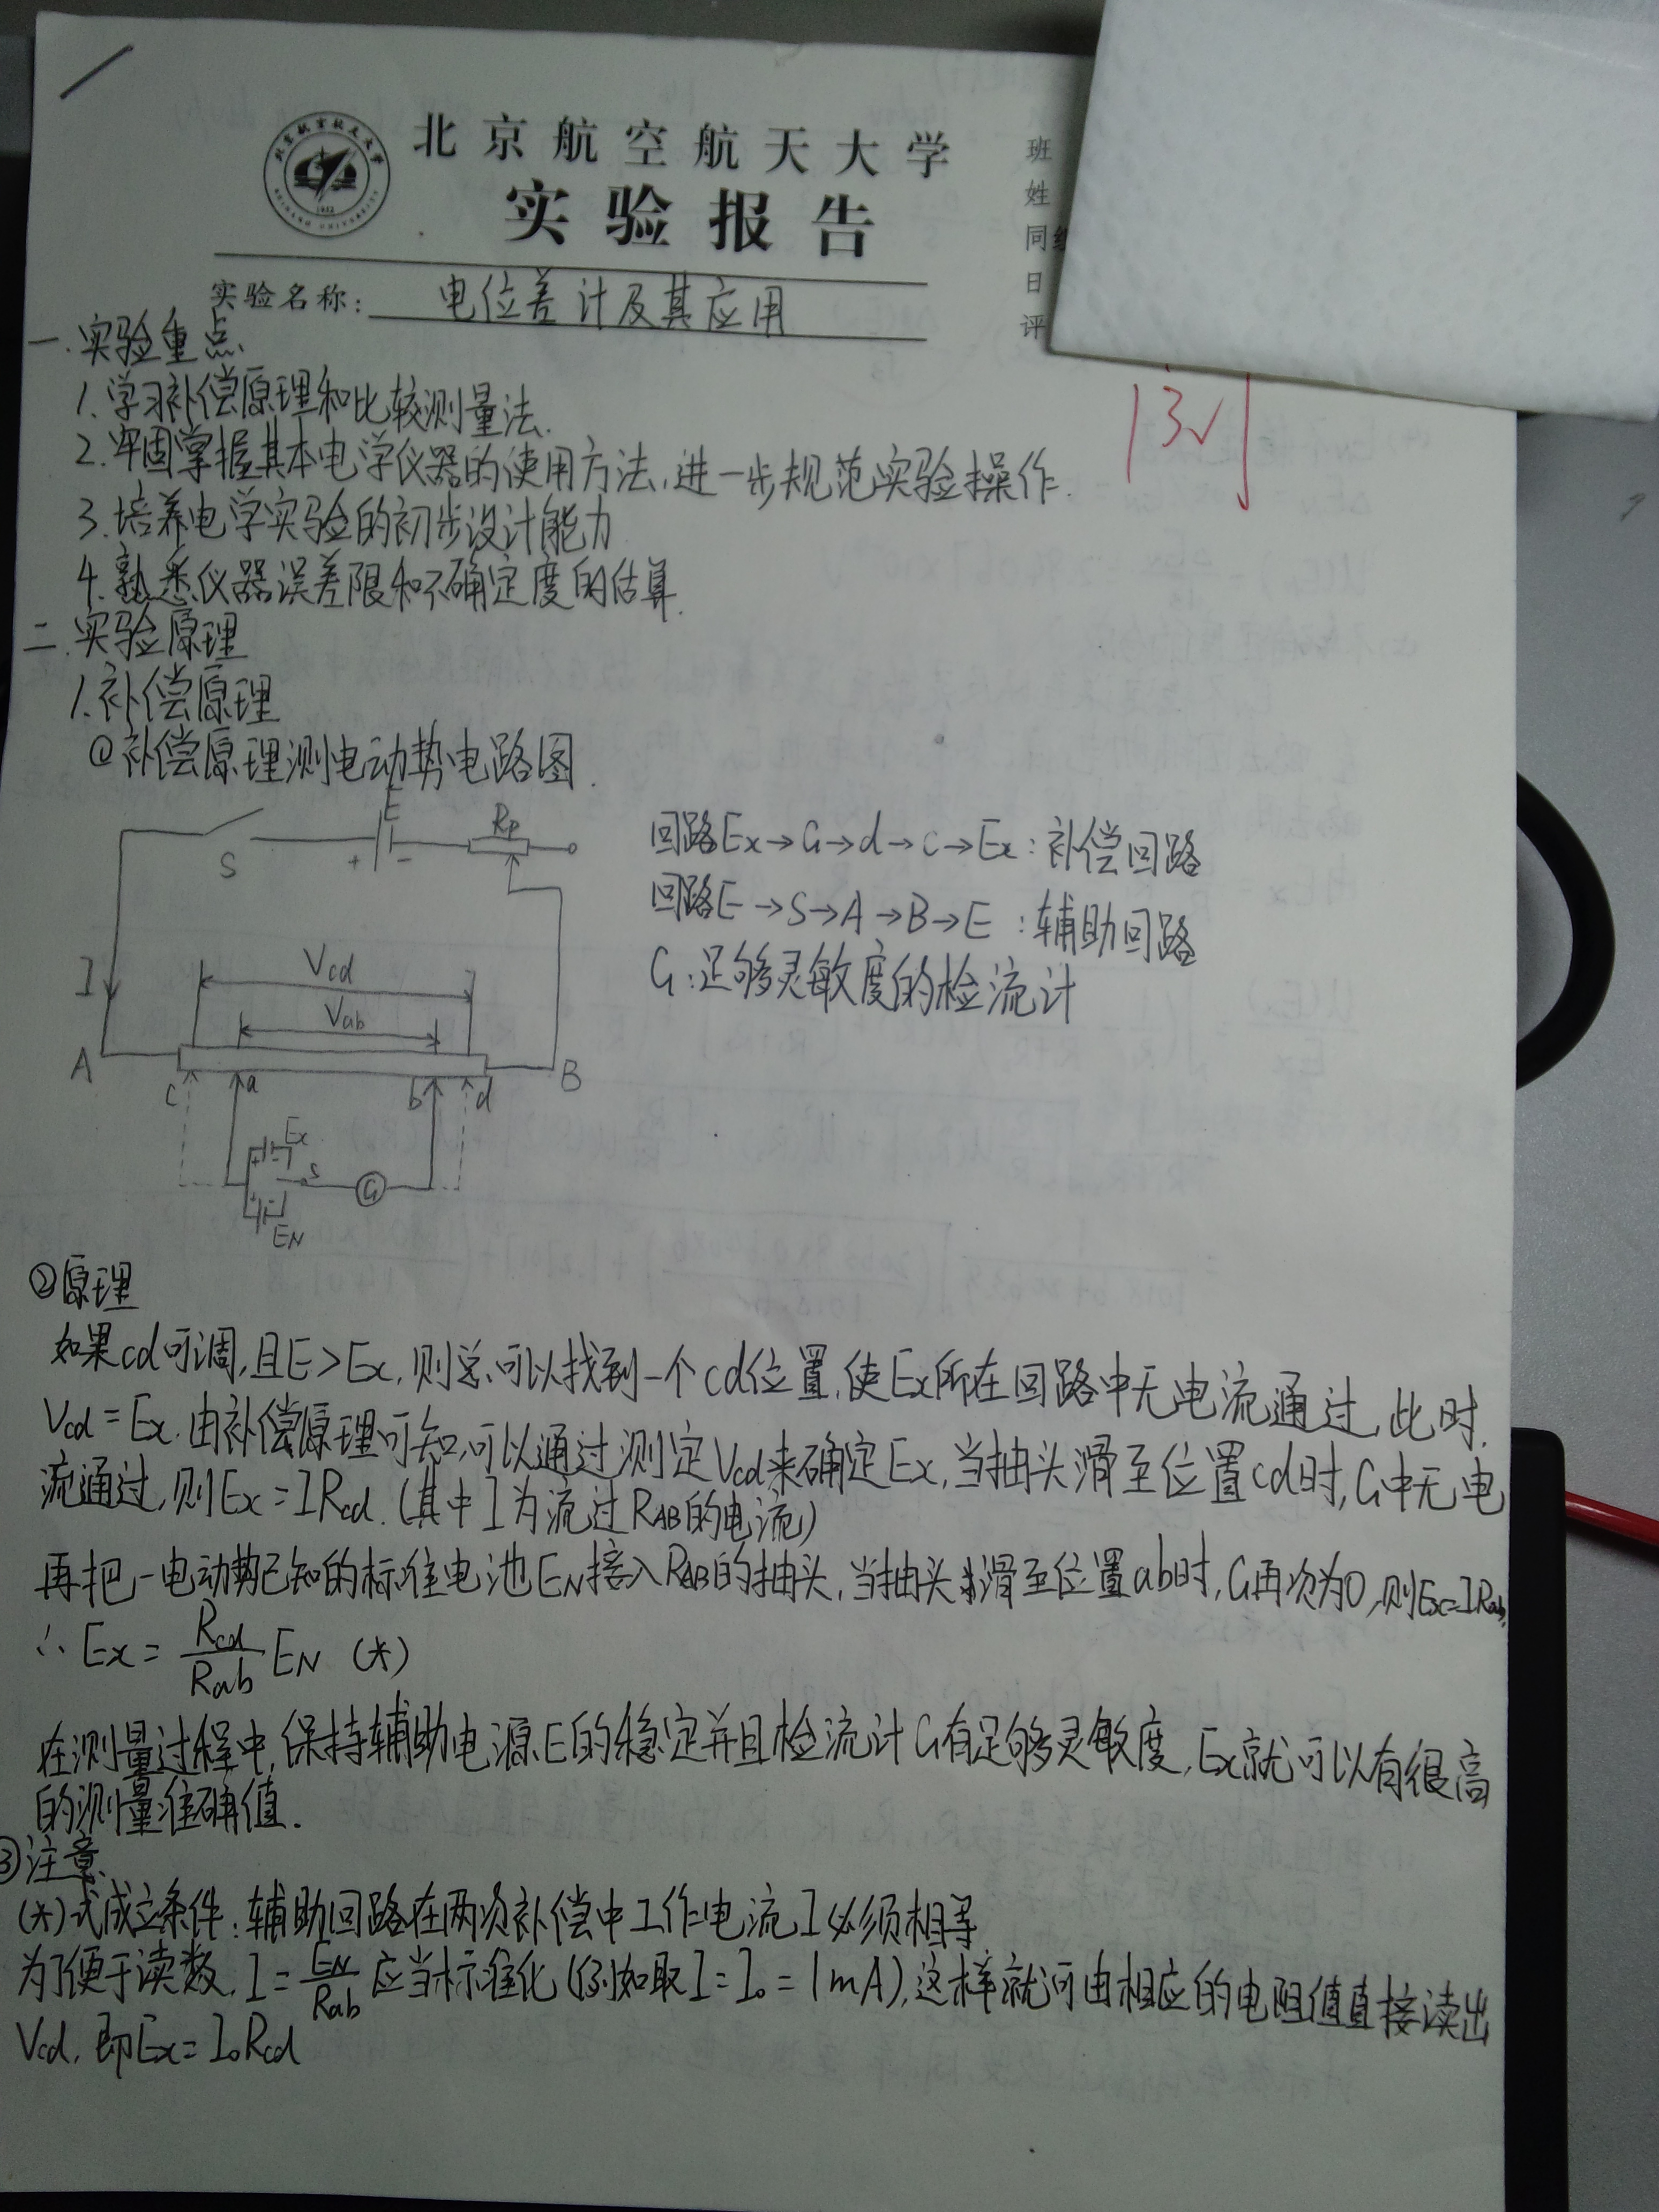 北京航空航天大学
实验报告
班
姓
同组
日
评
实验名称: 电位差计及其应用
一.实验重点
1.学习补偿原理和比较测量法.
2.牢固掌握其本电学仪器的使用方法,进一步规范实验操作.
3.培养电学实验的初步设计能力
4.熟悉仪器误差限和不确定度的估算.
二.实验原理
1.补偿原理
①补偿原理测电动势电路图.
E
S
+ -
Rp
I
Vcd
Vab
A
B
c a b d
Ex
+ -
S
G
+ -
EN
回路Ex→G→d→c→Ex:补偿回路
回路E→S→A→B→E:辅助回路
G:足够灵敏度的检流计
②原理
如果cd可调,且E>Ex,则总可以找到一个cd位置,使Ex所在回路中无电流通过,此时.
Vcd=Ex.由补偿原理可知,可以通过测定Vcd来确定Ex,当抽头滑至位置cd时,G中无电
流通过,则Ex=IRcd.(其中I为流过RAB的电流)
再把一电动势已知的标准电池EN接入RAB的抽头,当抽头滑至位置ab时,G再次为0,则Ex=IRab,
∴Ex=Rcd/Rab EN (*)
在测量过程中,保持辅助电源E的稳定并且检流计G有足够灵敏度,Ex就可以有很高
的测量准确值.
③注意
(*)式成立条件:辅助回路在两次补偿中工作电流I必须相等
为了便于读数,I=EN/Rab应当标准化(例如取I=I₀=1mA),这样就可由相应的电阻值直接读出
Vcd,即Ex=I₀Rcd